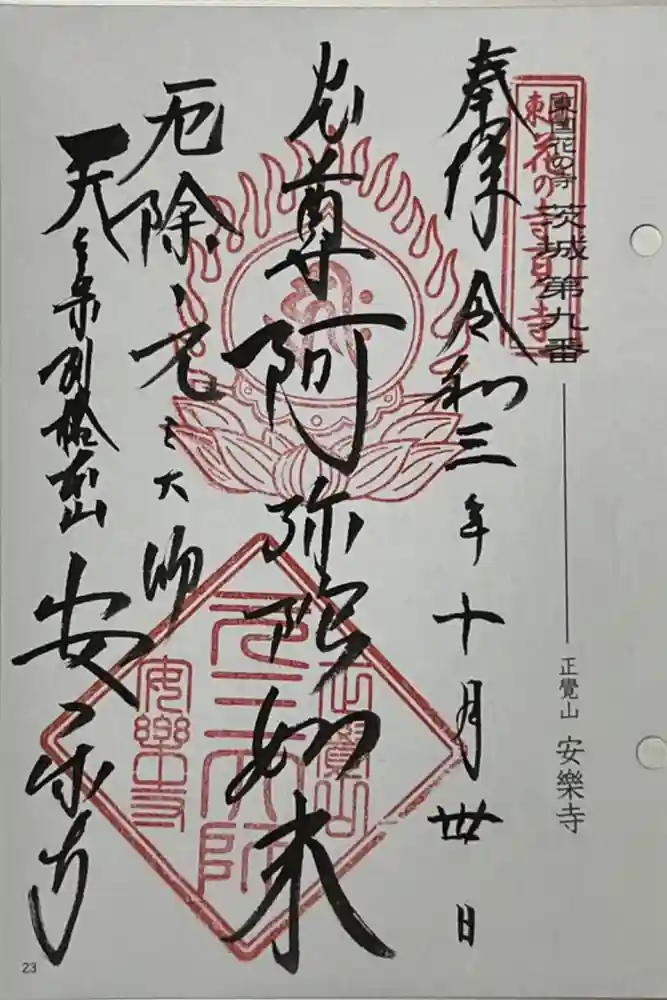 東国花の寺 茨城第九番
正覺山 安樂寺
東国花の寺百ヶ寺
奉拝 令和三年十月丗日
本尊 阿弥陀如来
厄除 元三大師
天台宗別格本山 安楽寺
正覺山
元三大師
安樂寺
23